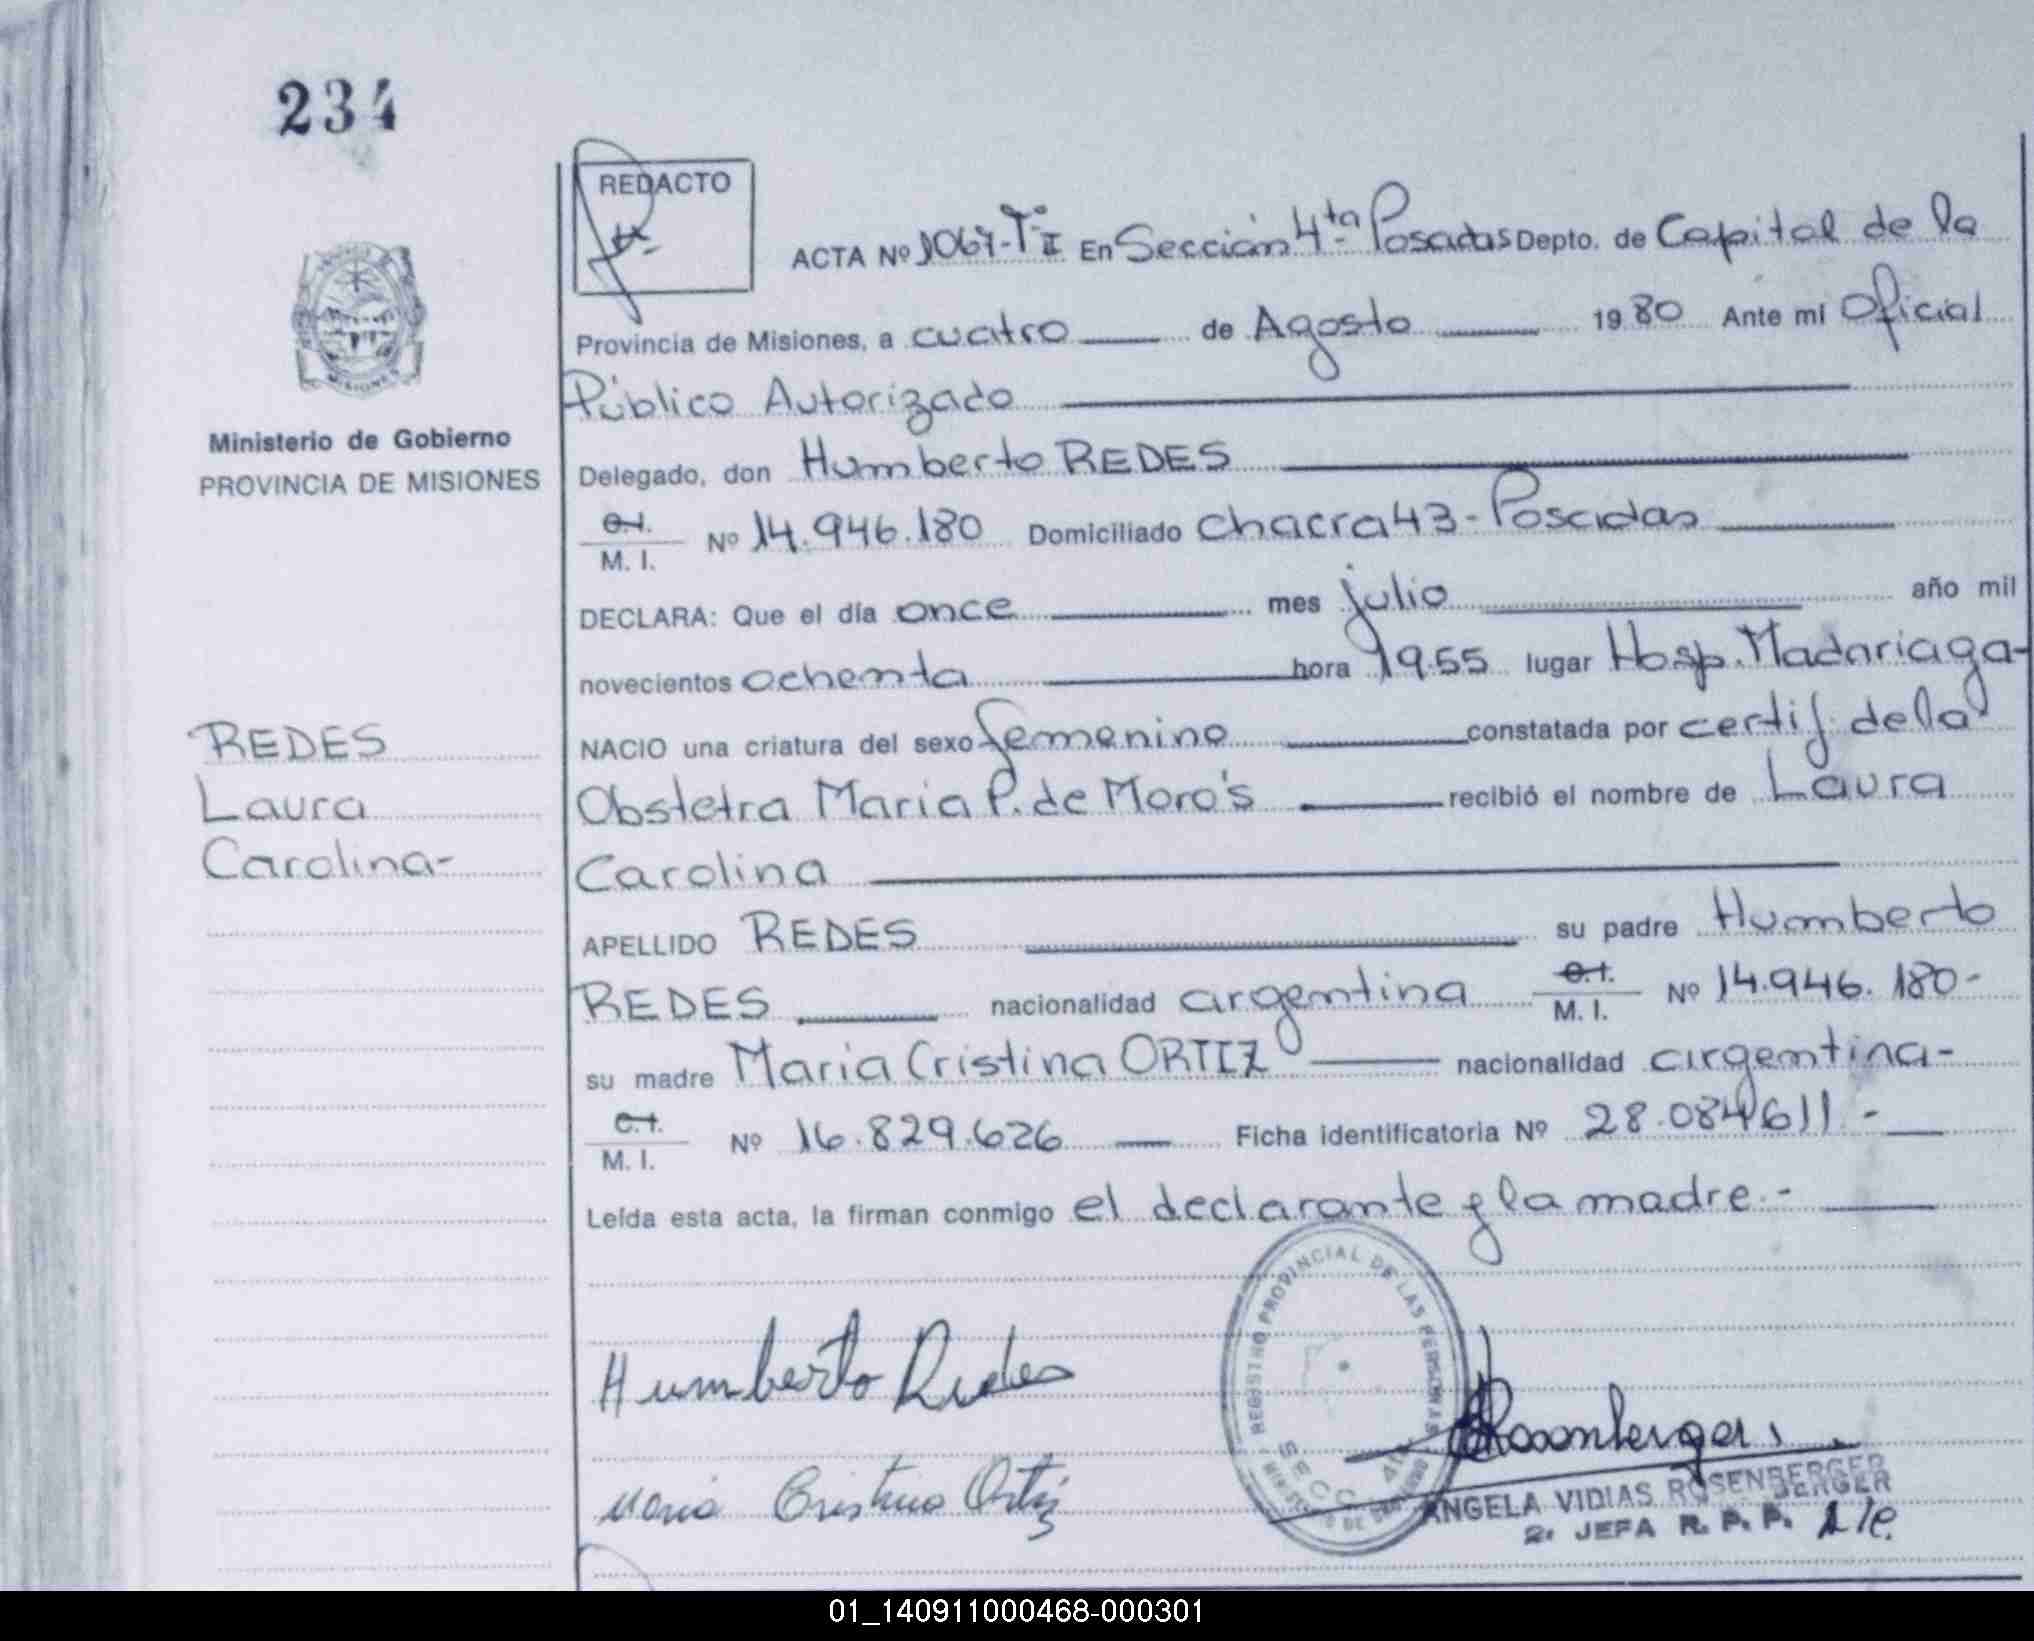 234
REDACTO
ACTA Nº 1067-Tº II En Sección 4ta Posadas Depto. de Capital de la
Provincia de Misiones, a cuatro de Agosto 1980 Ante mi Oficial
Público Autorizado
Delegado, don Humberto REDES
C.I.
M. I. Nº 14.946.180 Domiciliado chacra 43 - Posadas
DECLARA: Que el día once mes julio año mil
novecientos ochenta hora 19.55 lugar Hosp. Madariaga-
NACIO una criatura del sexo femenino constatada por certif. de la
Obstetra Maria P. de Moro's recibió el nombre de Laura
Carolina
APELLIDO REDES su padre Humberto
REDES nacionalidad argentina C.I.
M. I. Nº 14.946.180-
su madre Maria Cristina ORTIZ nacionalidad argentina-
C.I.
M. I. Nº 16.829.626 Ficha identificatoria Nº 28.084611-
Leída esta acta, la firman conmigo el declarante y la madre.-
MISIONES
Ministerio de Gobierno
PROVINCIA DE MISIONES
REDES
Laura
Carolina-
Humberto Redes
Maria Cristina Ortiz
REGISTRO PROVINCIAL DE LAS PERSONAS
SECC. 4ta
Rosenberger
ANGELA VIDIAS ROSENBERGER
2. JEFA R. P. P.
01_140911000468-000301